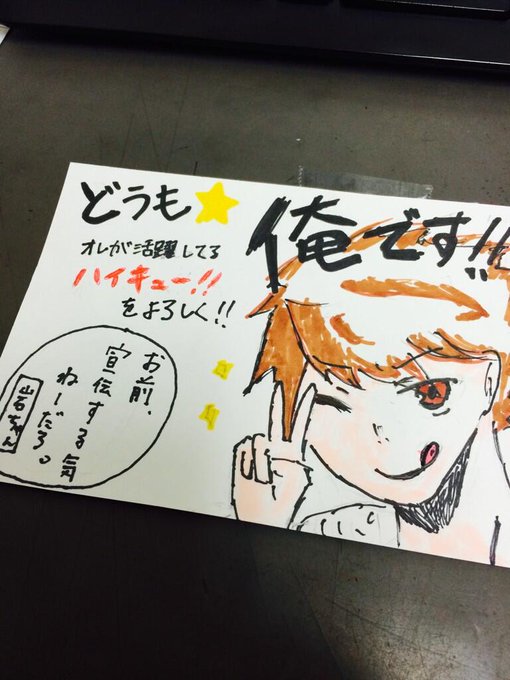 どうも
俺です!!
オレが活躍してる
ハイキュー!!
をよろしく!!
お前、
宣伝する気
ねーだろ。